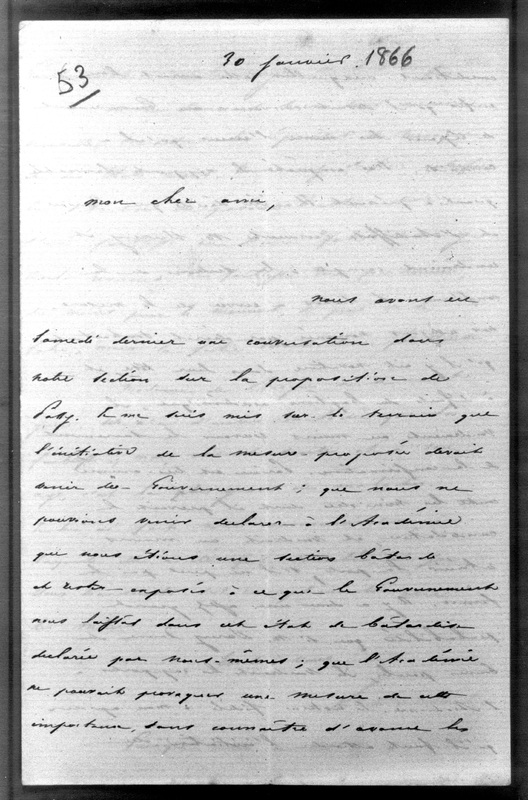 30 janvier 1866
53
mon cher ami,
nous avons eu
samedi dernier une conversation dans
notre section sur la proposition de
Passy. Je me suis mis sur le terrain que
l'initiative de la mesure proposée devait
venir du Gouvernement ; que nous ne
pouvions venir déclarer à l'Académie
que nous étions une section bâtarde
et rester exposés à ce que le Gouvernement
nous laissât dans cet état de bâtardise
déclarée par nous-mêmes ; que l'Académie
ne pouvait provoquer une mesure de cette
importance, sans connaître d'avance les